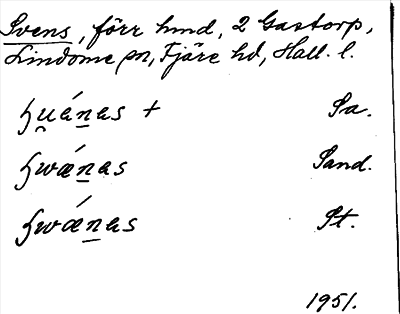 Svens, förr hmd, 2 Gastorp,
Lindome sn, Fjäre hd, Hall. l.
ʂu̯ánas + Sa.
ʂwǽnas Sand.
ʂwǽnas St.
1951.